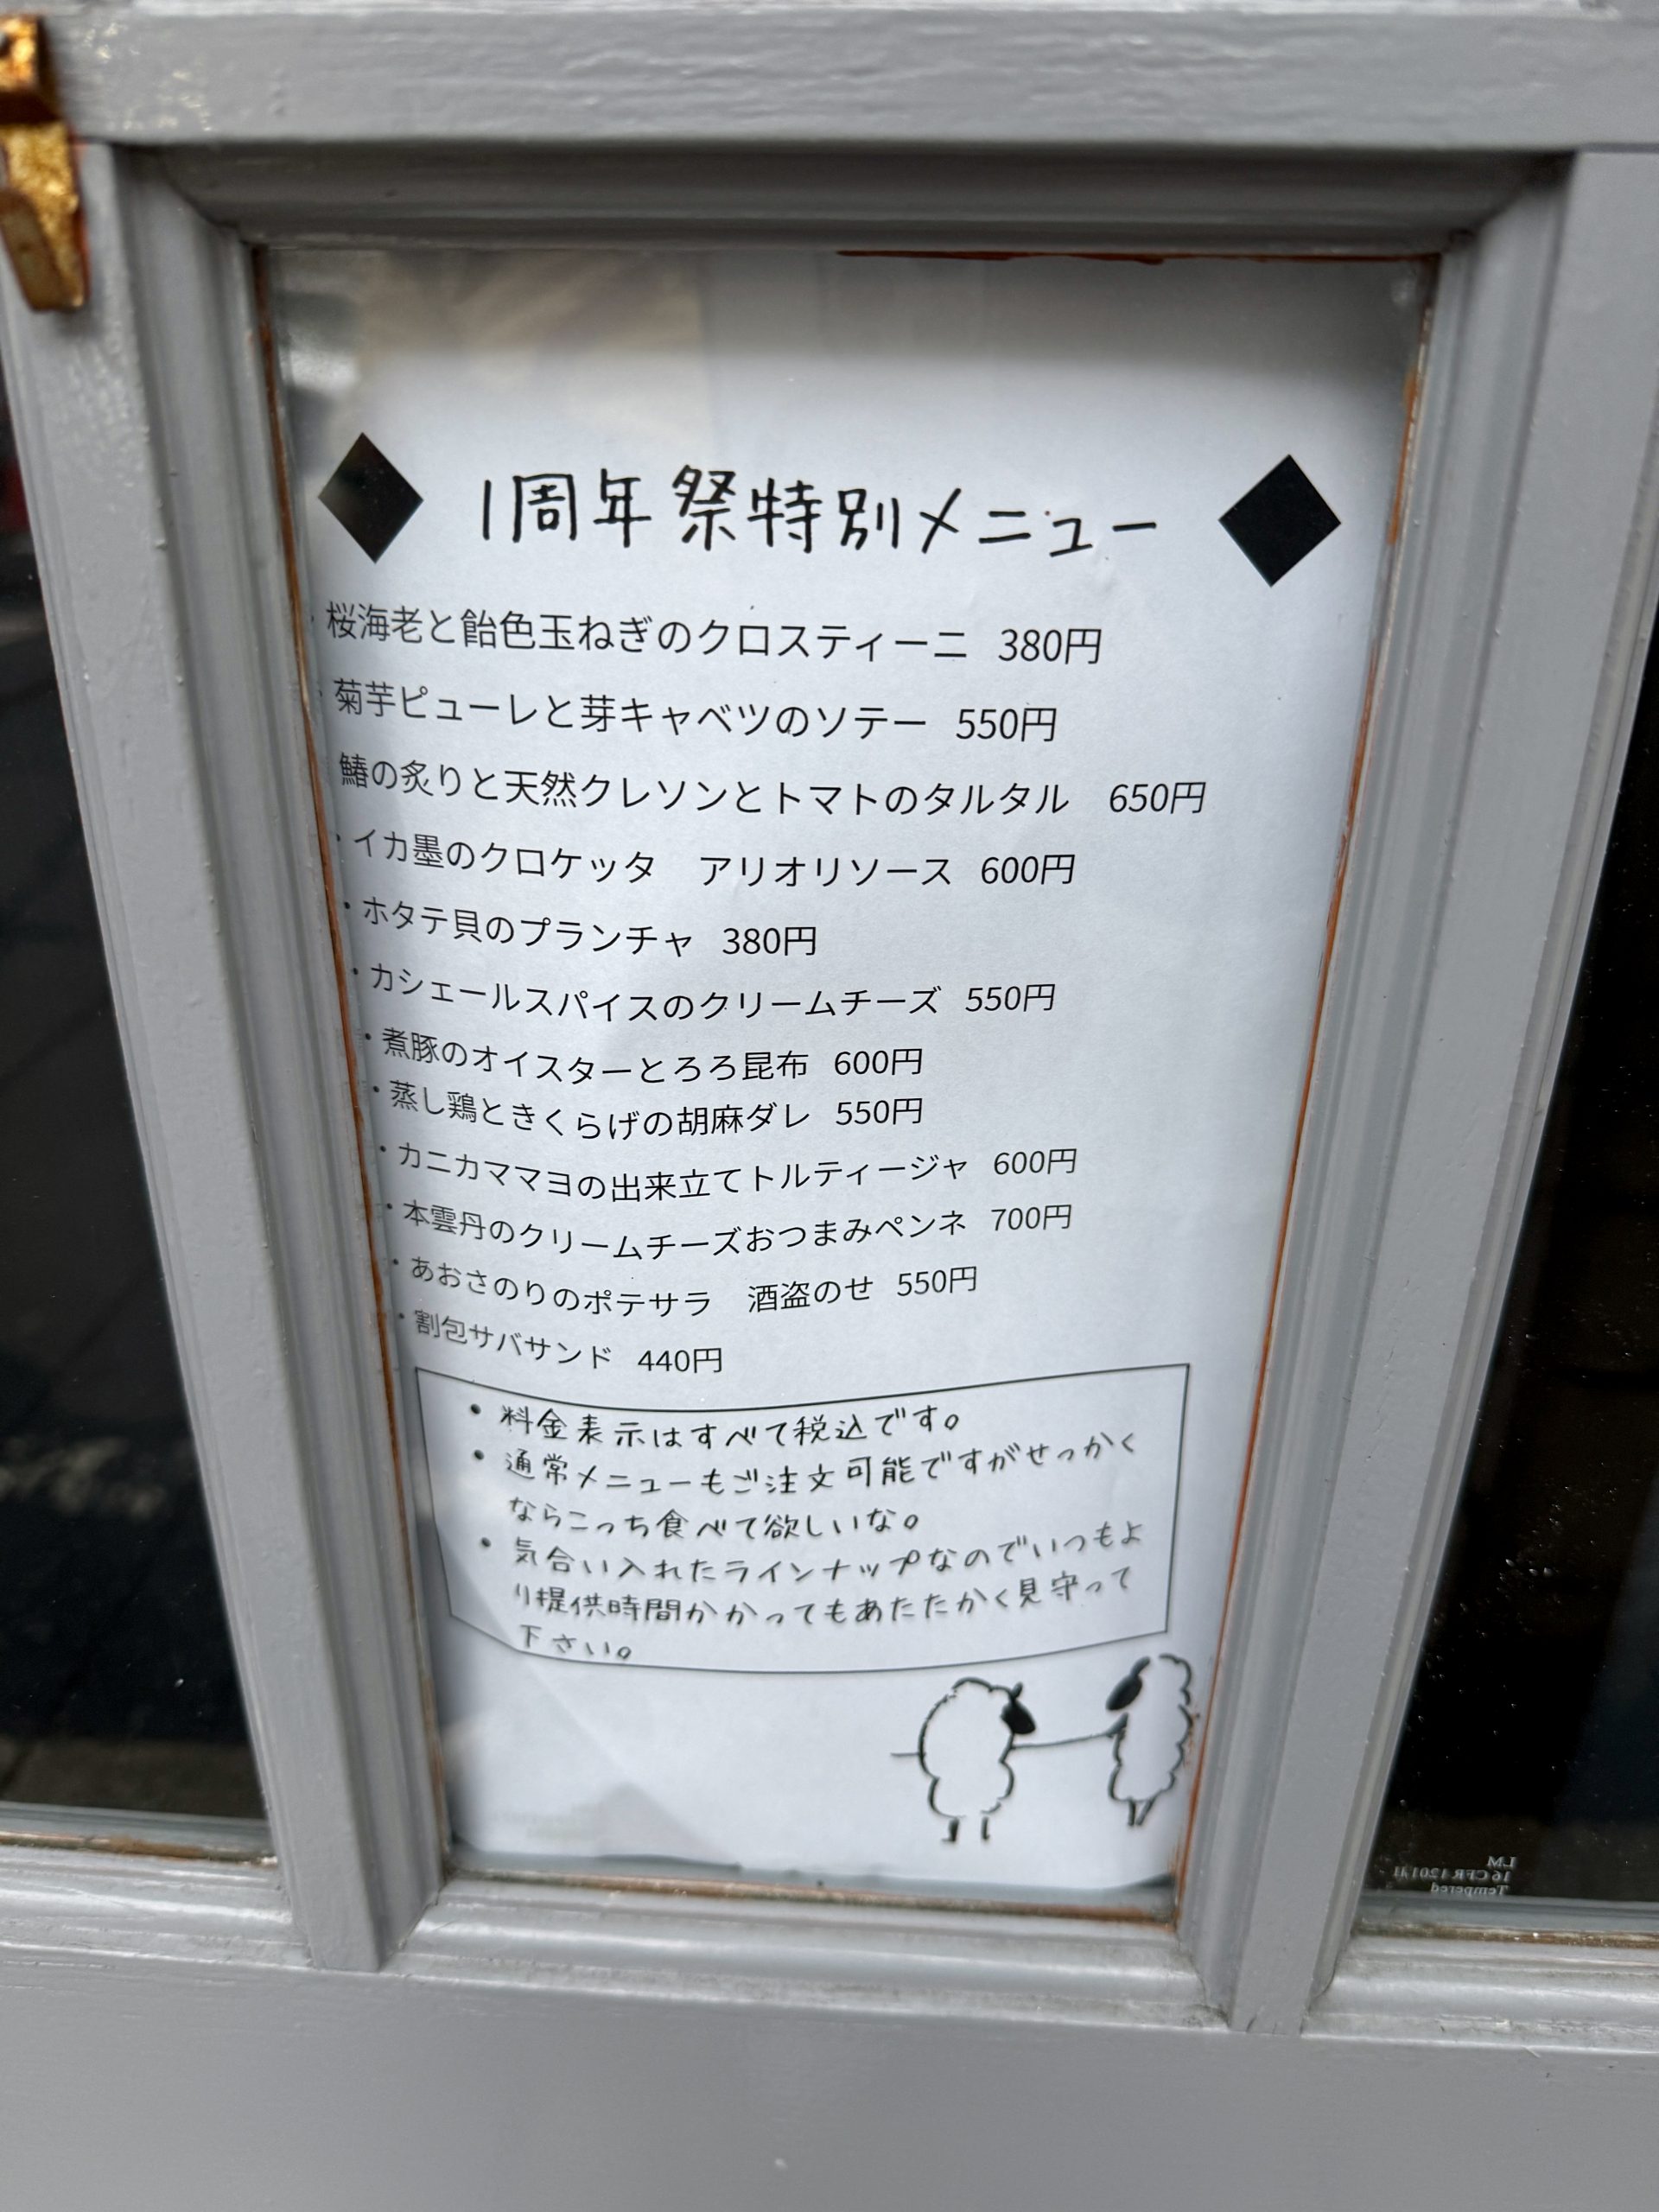 1周年祭特別メニュー
・桜海老と飴色玉ねぎのクロスティーニ 380円
・菊芋ピューレと芽キャベツのソテー 550円
鰆の炙りと天然クレソンとトマトのタルタル 650円
・イカ墨のクロケッタ アリオリソース 600円
・ホタテ貝のプランチャ 380円
・カシェールスパイスのクリームチーズ 550円
・煮豚のオイスターとろろ昆布 600円
・蒸し鶏ときくらげの胡麻ダレ 550円
・カニカママヨの出来立てトルティージャ 600円
・本雲丹のクリームチーズおつまみペンネ 700円
・あおさのりのポテサラ 酒盗のせ 550円
・割包サバサンド 440円
・料金表示はすべて税込です。
・通常メニューもご注文可能ですがせっかく
ならこっち食べて欲しいな。
・気合い入れたラインナップなのでいつもよ
り提供時間かかってもあたたかく見守って
下さい。
LM
16 CFR 1201 II
Tempered